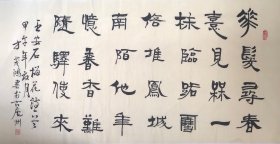 華髮尋春
喜見梅一
株臨路雪
倍堆鳳城
南陌他年
憶香杳難
隨驛使來
王安石梅花詩
甲午年
書於廣州